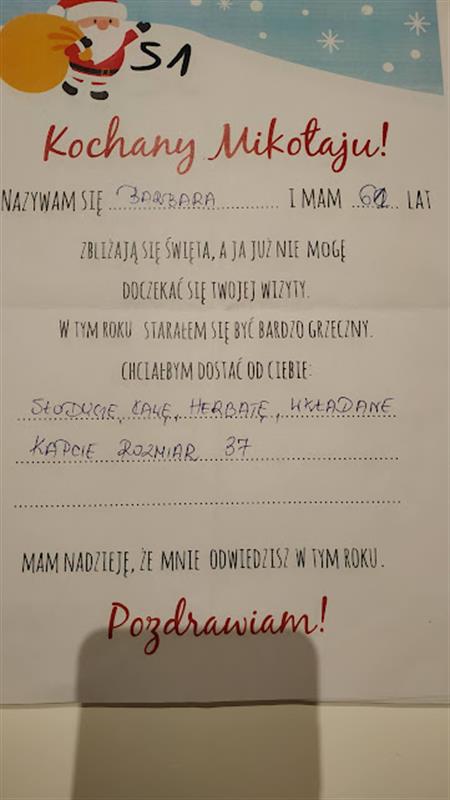 S1
Kochany Mikołaju!
NAZYWAM SIĘ BARBARA I MAM LAT
ZBLIŻAJĄ SIĘ ŚWIĘTA, A JA JUŻ NIE MOGĘ
DOCZEKAĆ SIĘ TWOJEJ WIZYTY.
W TYM ROKU STARAŁEM SIĘ BYĆ BARDZO GRZECZNY.
CHCIAŁBYM DOSTAĆ OD CIEBIE:
SŁODYCIE, KAWĘ, HERBATĘ, WKŁADANE
KAPCIE ROZMIAR 37
MAM NADZIEJĘ, ŻE MNIE ODWIEDZISZ W TYM ROKU.
Pozdrawiam!